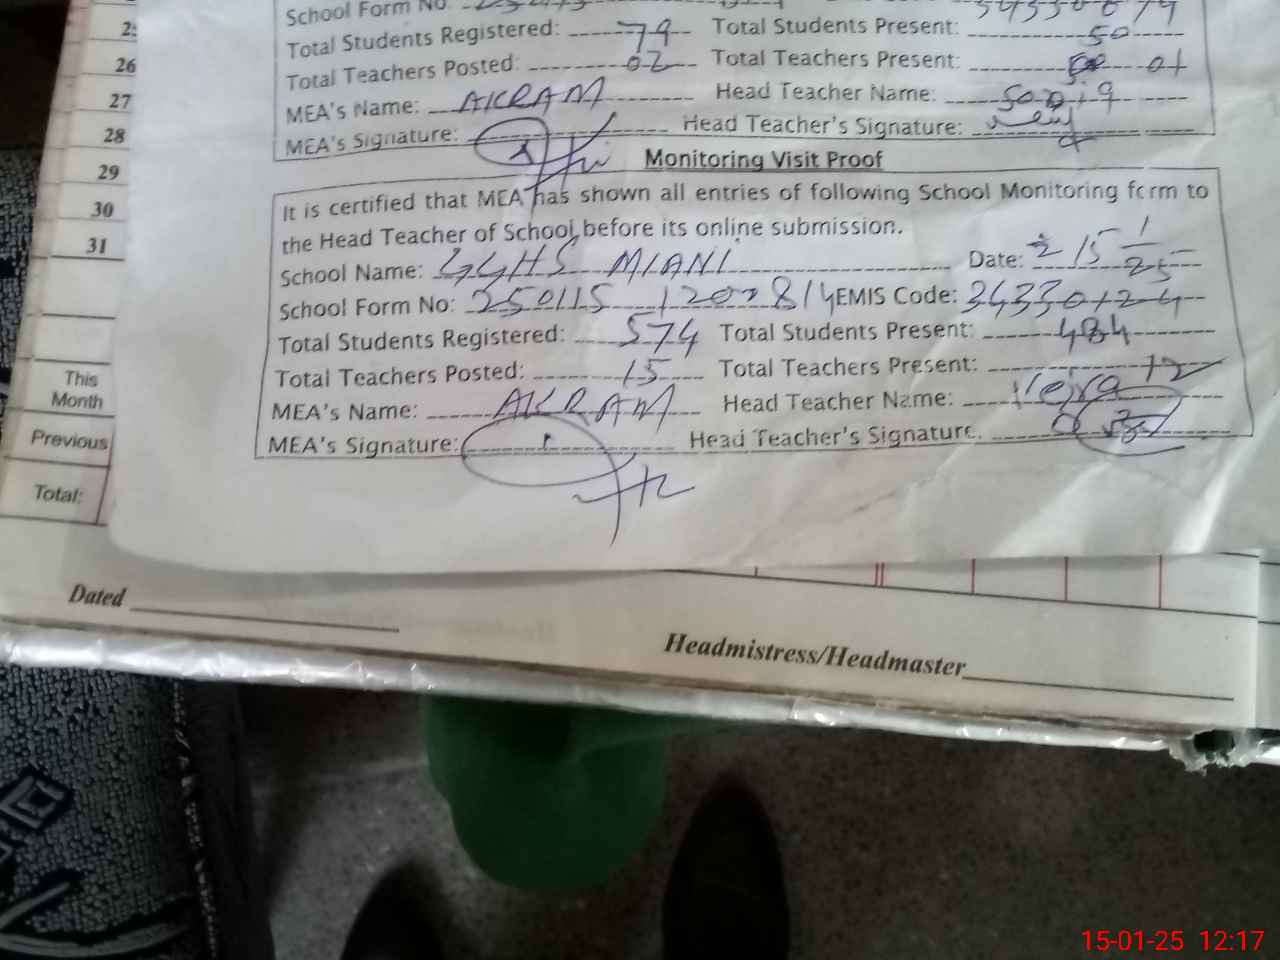 School Form No.
Total Students Registered: 79 Total Students Present: 50
Total Teachers Posted: 02 Total Teachers Present: 01
MEA's Name: AKRAM Head Teacher Name:
MEA's Signature: Head Teacher's Signature:
Monitoring Visit Proof
It is certified that MEA has shown all entries of following School Monitoring form to
the Head Teacher of School before its online submission.
School Name: GGHS MIANI Date: 15/1/25
School Form No: 250115 EMIS Code: 34330124
Total Students Registered: 574 Total Students Present: 484
Total Teachers Posted: 15 Total Teachers Present: 12
MEA's Name: AKRAM Head Teacher Name:
MEA's Signature: Head Teacher's Signature.
26
27
28
29
30
31
This
Month
Previous
Total:
Dated
Headmistress/Headmaster
15-01-25 12:17